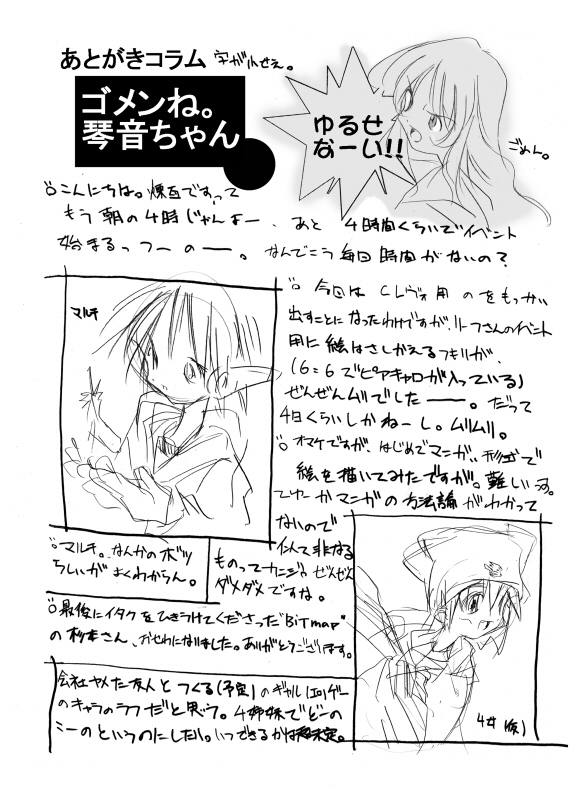 あとがきコラム 字が小せぇ。
ゴメンね。
琴音ちゃん
ゆるせ
なーい!!
ごめん。
こんにちは。煉瓦ですって
もう朝の4時じゃんよー、あと 4時間くらいでイベント
始まるっつーのー。なんでこう毎回時間がないの?
マルチ
今回はCレヴォ用のをもっかい
出すことになったわけですが、リーフさんのイベント
用に絵はさしかえるつもりが、
(6=6でピアキャロが入っている)
ぜんぜんムリでしたー。だって
4日くらいしかねーし。ムリムリ。
オマケですが、はじめてマンガ形式で
絵を描いてみたですが。難しい。
マンガの方法論がわかって
ないので
似て非なる
ものってカンジ。ぜんぜん
ダメダメですな。
マルチ。なんかのボツ
らしいがよくわからん。
最後にイタクをひきうけてくださった"BiTmap"
の杉本さん、おせわになりました。ありがとうございます。
会社ヤメた友人とつくる(予定)のギャル(エロ)ゲー
のキャラのラフだと思う。4姉妹でどーの
こーのというのにしたい。いつできるかは未定。
4女(仮)